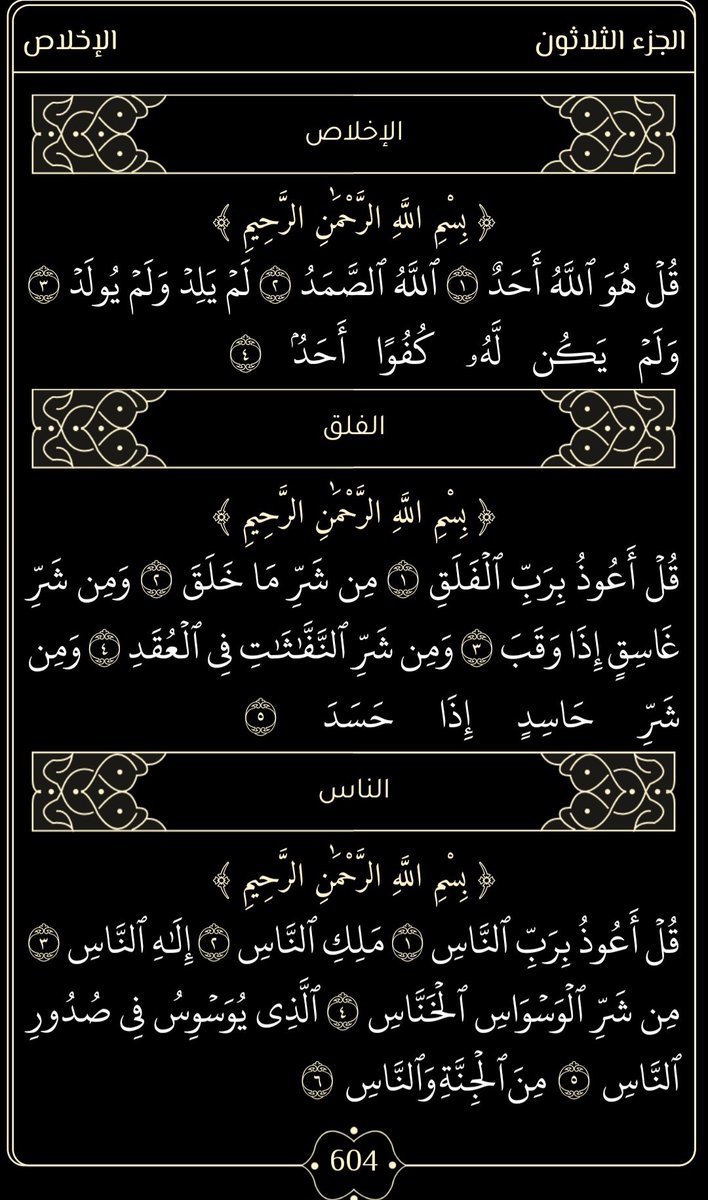 الجزء الثلاثون الإخلاص
الإخلاص
﴿ بِسْمِ اللَّهِ الرَّحْمَٰنِ الرَّحِيمِ ﴾
قُلۡ هُوَ ٱللَّهُ أَحَدٌ ١ ٱللَّهُ ٱلصَّمَدُ ٢ لَمۡ يَلِدۡ وَلَمۡ يُولَدۡ ٣
وَلَمۡ يَكُن لَّهُۥ كُفُوًا أَحَدُۢ ٤
الفلق
﴿ بِسْمِ اللَّهِ الرَّحْمَٰنِ الرَّحِيمِ ﴾
قُلۡ أَعُوذُ بِرَبِّ ٱلۡفَلَقِ ١ مِن شَرِّ مَا خَلَقَ ٢ وَمِن شَرِّ
غَاسِقٍ إِذَا وَقَبَ ٣ وَمِن شَرِّ ٱلنَّفَّٰثَٰتِ فِي ٱلۡعُقَدِ ٤ وَمِن
شَرِّ حَاسِدٍ إِذَا حَسَدَ ٥
الناس
﴿ بِسْمِ اللَّهِ الرَّحْمَٰنِ الرَّحِيمِ ﴾
قُلۡ أَعُوذُ بِرَبِّ ٱلنَّاسِ ١ مَلِكِ ٱلنَّاسِ ٢ إِلَٰهِ ٱلنَّاسِ ٣
مِن شَرِّ ٱلۡوَسۡوَاسِ ٱلۡخَنَّاسِ ٤ ٱلَّذِي يُوَسۡوِسُ فِي صُدُورِ
ٱلنَّاسِ ٥ مِنَ ٱلۡجِنَّةِ وَٱلنَّاسِ ٦
604